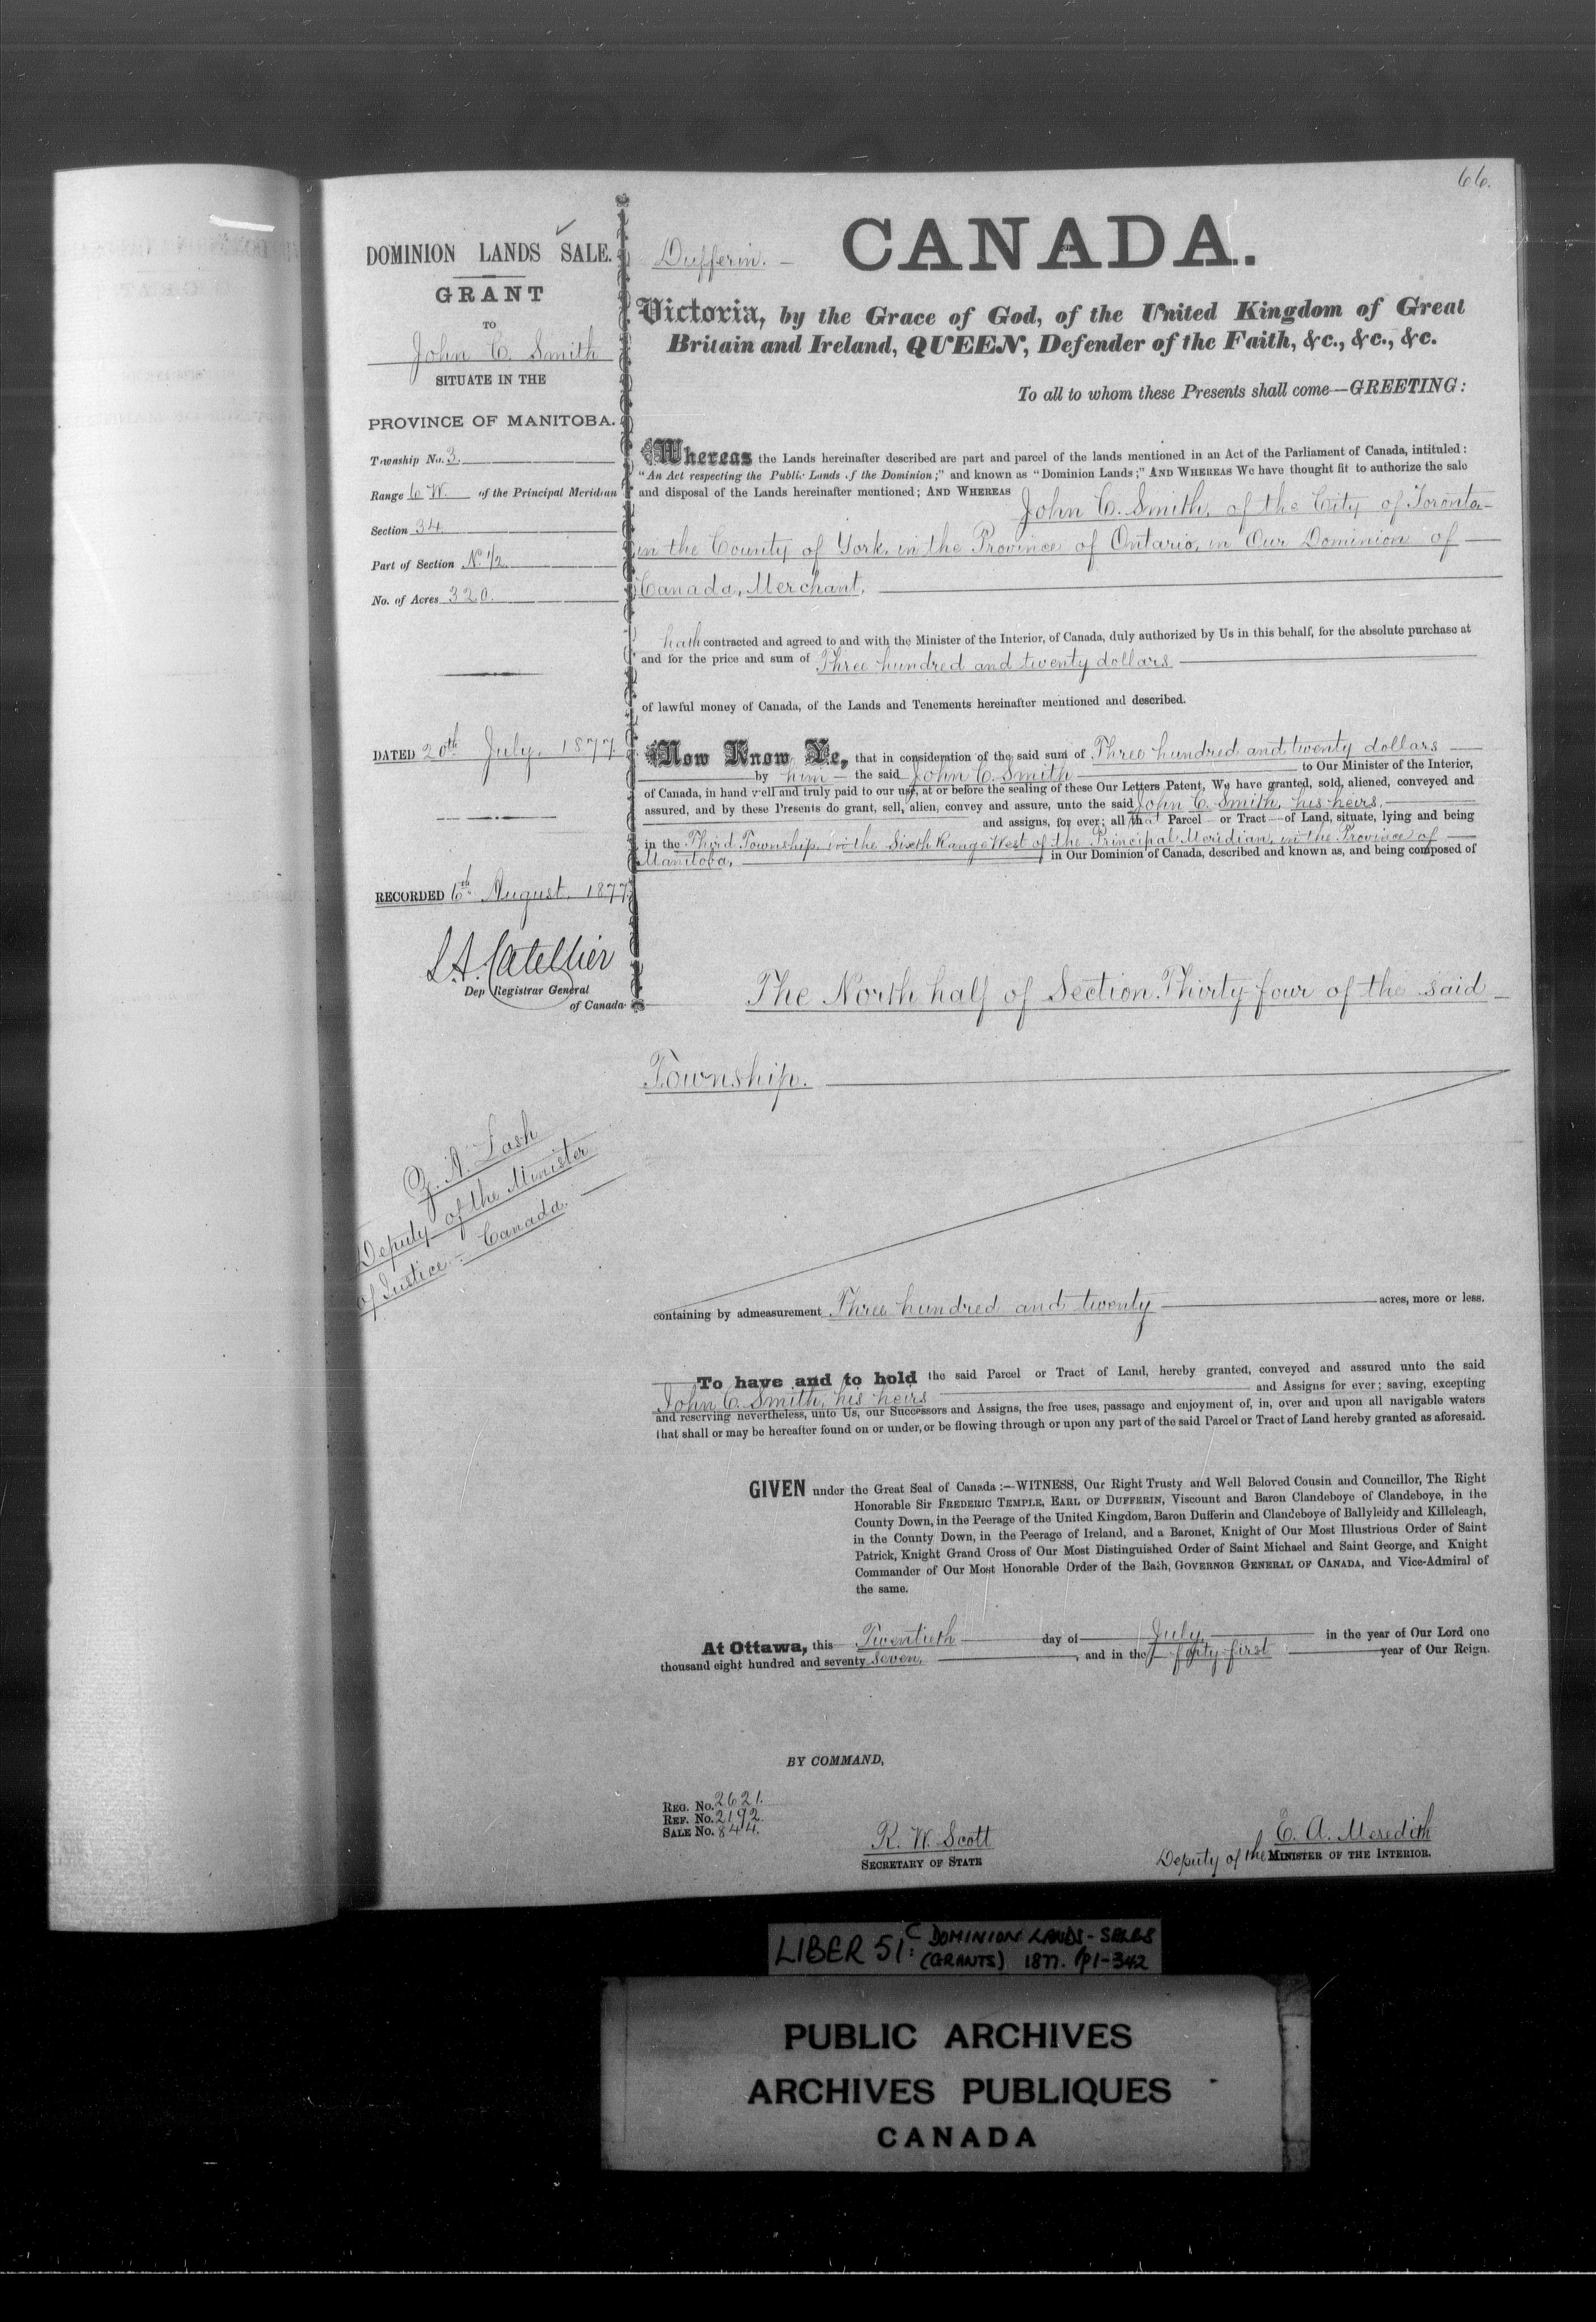 66.
DOMINION LANDS SALE.
GRANT
TO
John C. Smith
SITUATE IN THE
PROVINCE OF MANITOBA.
Township No. 3.
Range 6 W. of the Principal Meridian
Section 34
Part of Section N. 1/2
No. of Acres 320.
DATED 20th July. 1877.
RECORDED 6th August. 1877.
L.A. Catellier
Dep Registrar General
of Canada.
Z. A. Lash
Deputy of the Minister
of Justice - Canada.
Dufferin. -
CANADA.
Victoria, by the Grace of God, of the United Kingdom of Great
Britain and Ireland, QUEEN, Defender of the Faith, &c., &c., &c.
To all to whom these Presents shall come—GREETING:
Whereas the Lands hereinafter described are part and parcel of the lands mentioned in an Act of the Parliament of Canada, intituled:
"An Act respecting the Public Lands of the Dominion;" and known as "Dominion Lands;" AND WHEREAS We have thought fit to authorize the sale
and disposal of the Lands hereinafter mentioned; AND WHEREAS John C. Smith, of the City of Toronto
in the County of York, in the Province of Ontario, in Our Dominion of
Canada, Merchant,
hath contracted and agreed to and with the Minister of the Interior, of Canada, duly authorized by Us in this behalf, for the absolute purchase at
and for the price and sum of Three hundred and twenty dollars
of lawful money of Canada, of the Lands and Tenements hereinafter mentioned and described.
Now Know Ye, that in consideration of the said sum of Three hundred and twenty dollars
by him the said John C. Smith to Our Minister of the Interior,
of Canada, in hand well and truly paid to our use, at or before the sealing of these Our Letters Patent, We have granted, sold, aliened, conveyed and
assured, and by these Presents do grant, sell, alien, convey and assure, unto the said John C. Smith, his heirs,
and assigns, for ever; all that Parcel or Tract of Land, situate, lying and being
in the Third Township, in the Sixth Range West of the Principal Meridian, in the Province of
Manitoba, in Our Dominion of Canada, described and known as, and being composed of
The North half of Section Thirty four of the said
Township.
containing by admeasurement Three hundred and twenty acres, more or less.
To have and to hold the said Parcel or Tract of Land, hereby granted, conveyed and assured unto the said
John C. Smith, his heirs and Assigns for ever; saving, excepting
and reserving nevertheless, unto Us, our Successors and Assigns, the free uses, passage and enjoyment of, in, over and upon all navigable waters
that shall or may be hereafter found on or under, or be flowing through or upon any part of the said Parcel or Tract of Land hereby granted as aforesaid.
GIVEN under the Great Seal of Canada:—WITNESS, Our Right Trusty and Well Beloved Cousin and Councillor, The Right
Honorable Sir FREDERIC TEMPLE, EARL OF DUFFERIN, Viscount and Baron Clandeboye of Clandeboye, in the
County Down, in the Peerage of the United Kingdom, Baron Dufferin and Clandeboye of Ballyleidy and Killeleagh,
in the County Down, in the Peerage of Ireland, and a Baronet, Knight of Our Most Illustrious Order of Saint
Patrick, Knight Grand Cross of Our Most Distinguished Order of Saint Michael and Saint George, and Knight
Commander of Our Most Honorable Order of the Bath, GOVERNOR GENERAL OF CANADA, and Vice-Admiral of
the same.
At Ottawa, this Twentieth day of July in the year of Our Lord one
thousand eight hundred and seventy seven, and in the forty first year of Our Reign.
BY COMMAND,
REG. No. 2621.
REF. No. 2192.
SALE No. 844.
R. W. Scott
SECRETARY OF STATE
E. A. Meredith
Deputy of the MINISTER OF THE INTERIOR.
LIBER 51C: DOMINION LANDS - SALES
(GRANTS) 1877. p1-342
PUBLIC ARCHIVES
ARCHIVES PUBLIQUES
CANADA